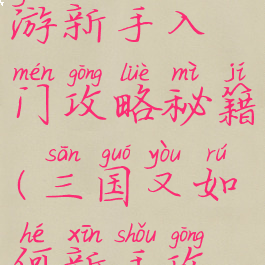 游新手入
mén gōng lüè mì jí
门攻略秘籍
sān guó yòu rú
（三国又如
hé xīn shǒu gōng
何新手攻